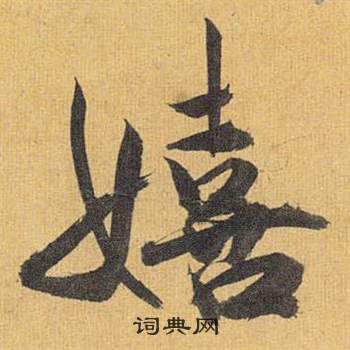 嬉
词典网